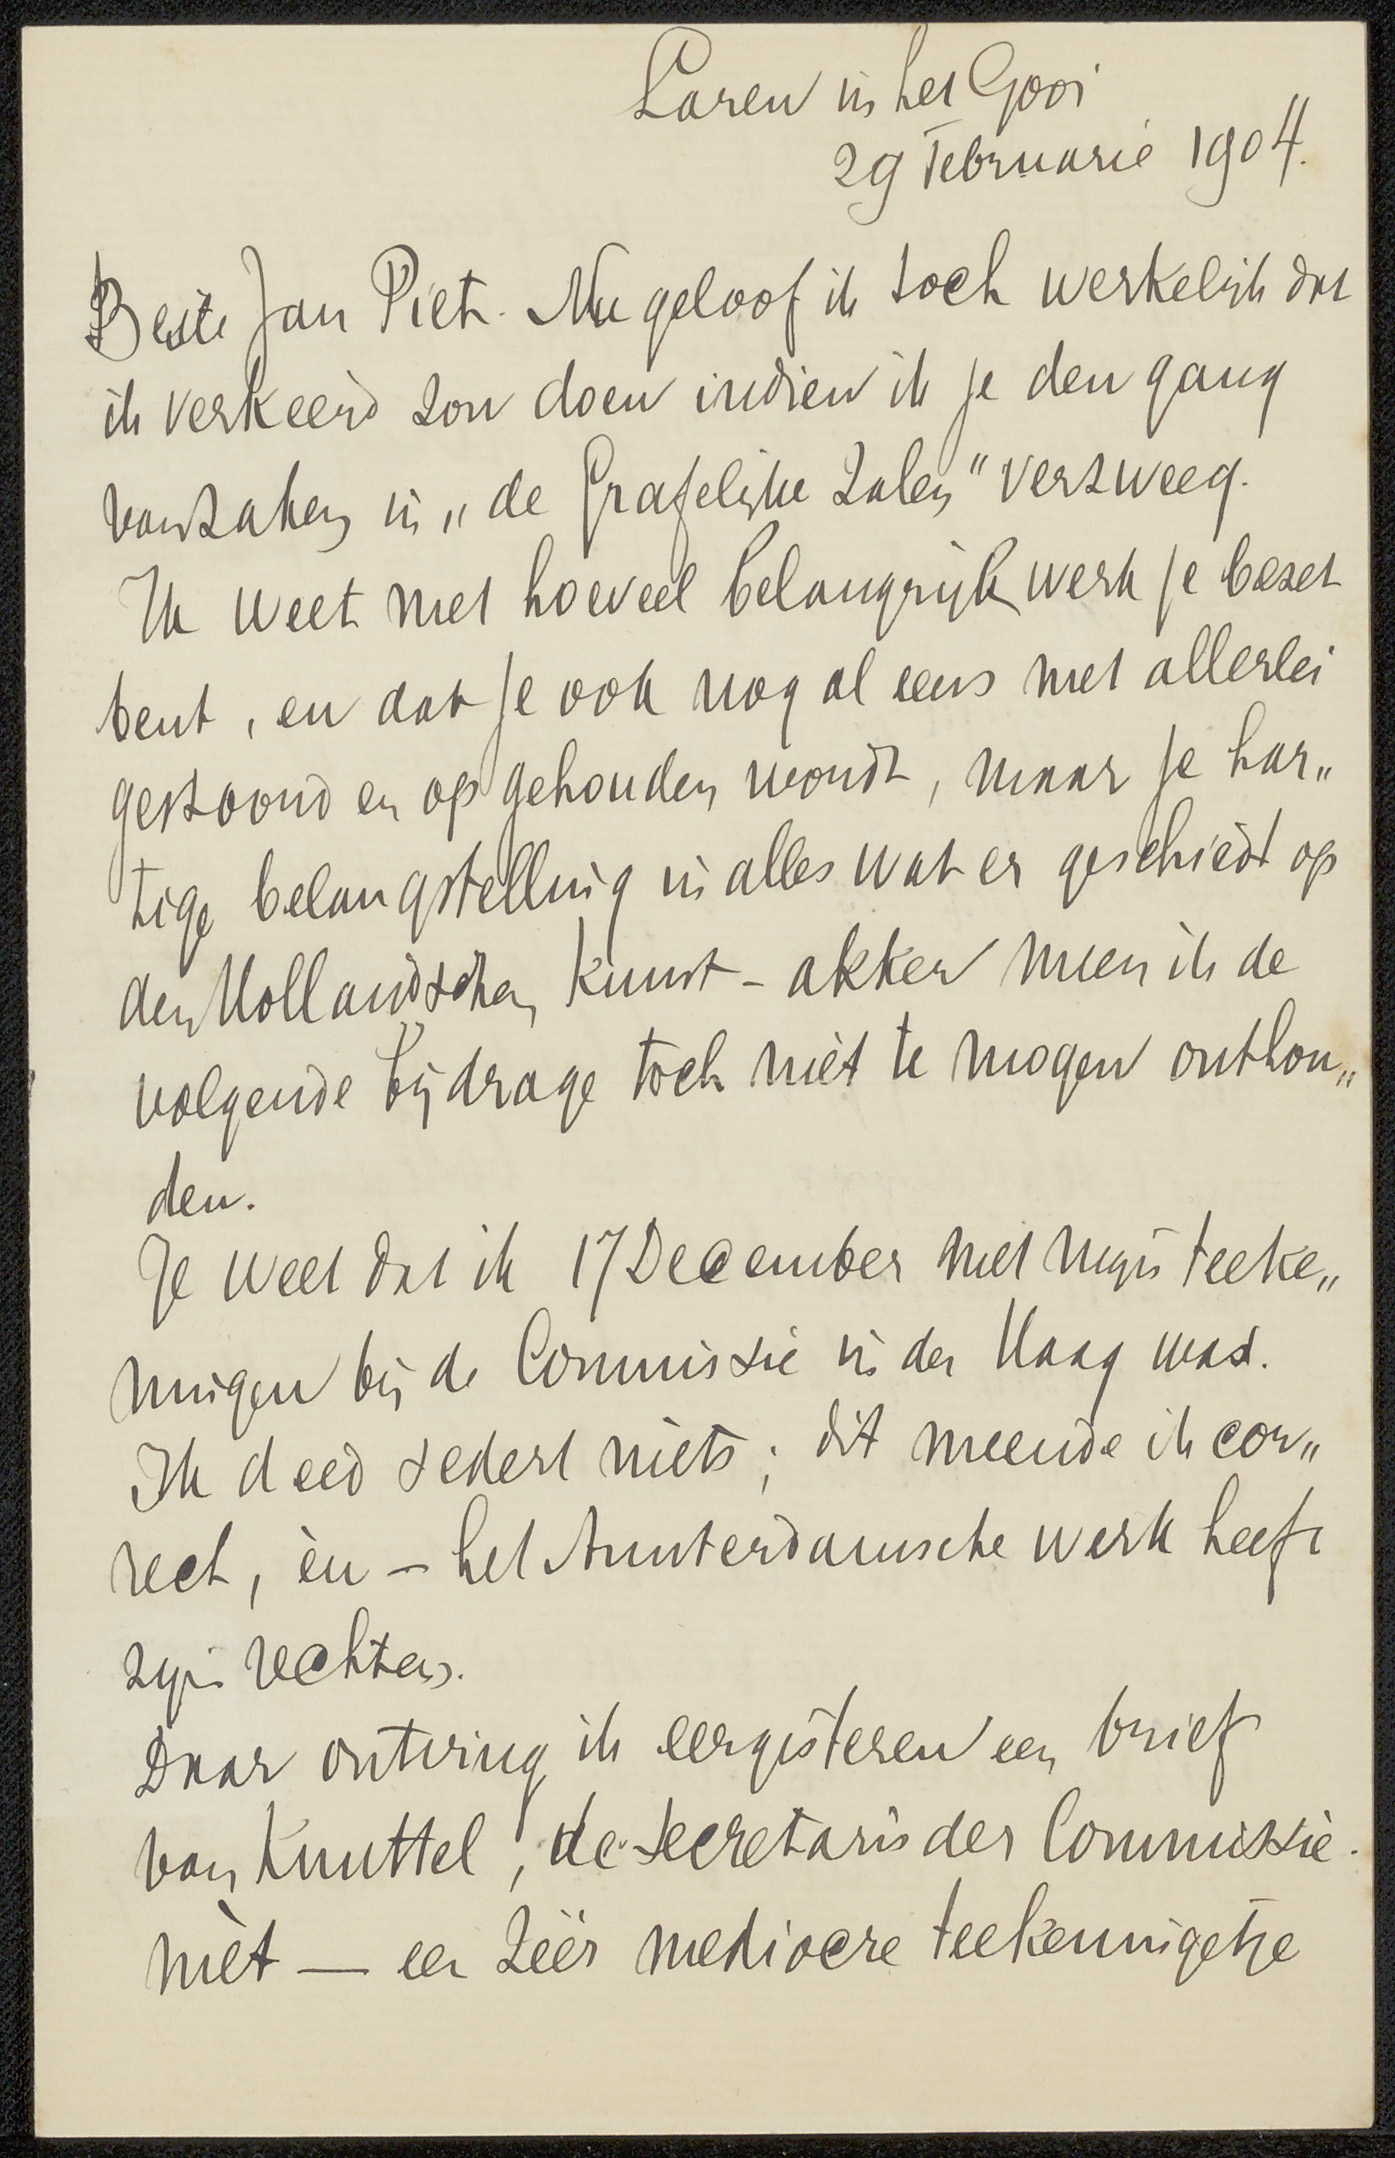 Laren in het Gooi
29 Februarie 1904.
Beste Jan Piet. Nu geloof ik toch werkelijk dat
ik verkeerd zou doen indien ik je den gang
van zaken in „de Grafelijke Zalen" verzweeg.
Ik weet met hoeveel belangrijk werk je bezet
bent, en dat je ook nog al eens met allerlei
gestoord en opgehouden wordt, maar je har„
tige belangstelling in alles wat er geschiedt op
den Hollandschen Kunst-akker meen ik de
volgende bijdrage toch niet te mogen onthou„
den.
Je weet dat ik 17 December met mijn teeke„
ningen bij de Commissie in den Haag was.
Ik deed sedert niets; dit meende ik cor„
rect, èn – het Amsterdamsche werk heeft
zijn rechten.
Daar ontving ik eergisteren een brief
van Knuttel, de secretaris der Commissie.
mèt — een zéér mediocre teekeningetje